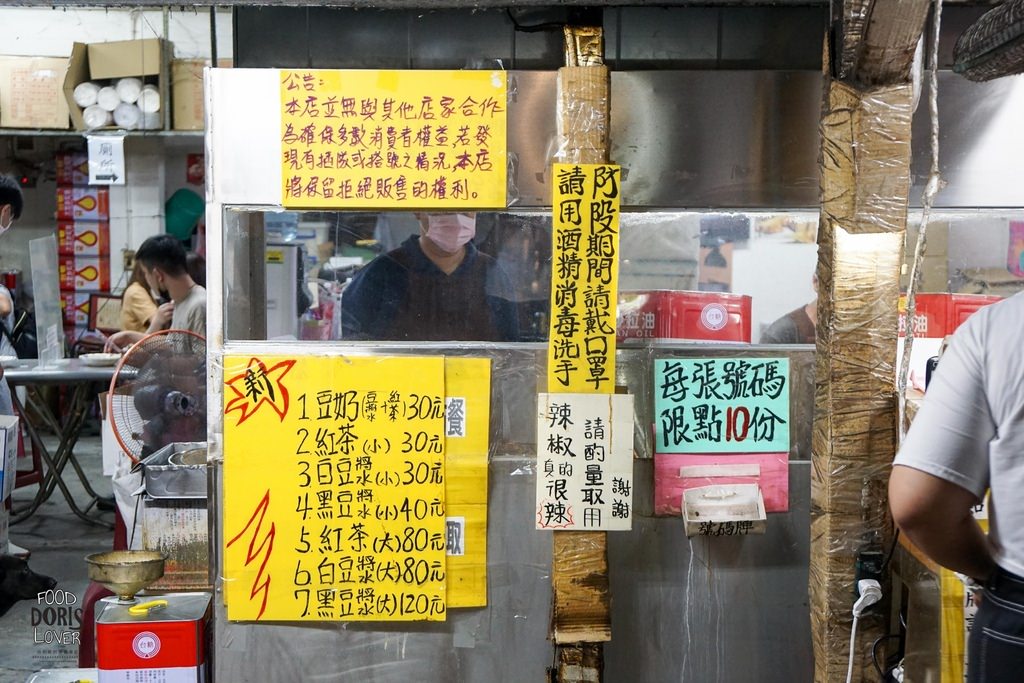 公告:
本店並無與其他店家合作
為確保多數消費者權益,若發
現有插隊或搭號之情況,本店
將保留拒絕販售的權利。
廁所
阿段期間請戴口罩
請用酒精消毒洗手
新
1.豆奶(豆漿水+紅茶)30元
2.紅茶(小) 30元
3.白豆漿水(小)30元
4.黑豆漿水(小)40元
5.紅茶(大)80元
6.白豆漿水(大)80元
7.黑豆漿水(大)120元
餐
取
辣椒真的很辣
請酌量取用
謝謝
每張號碼
限點10份
號碼牌
台糖
FOOD
DORIS
LOVER